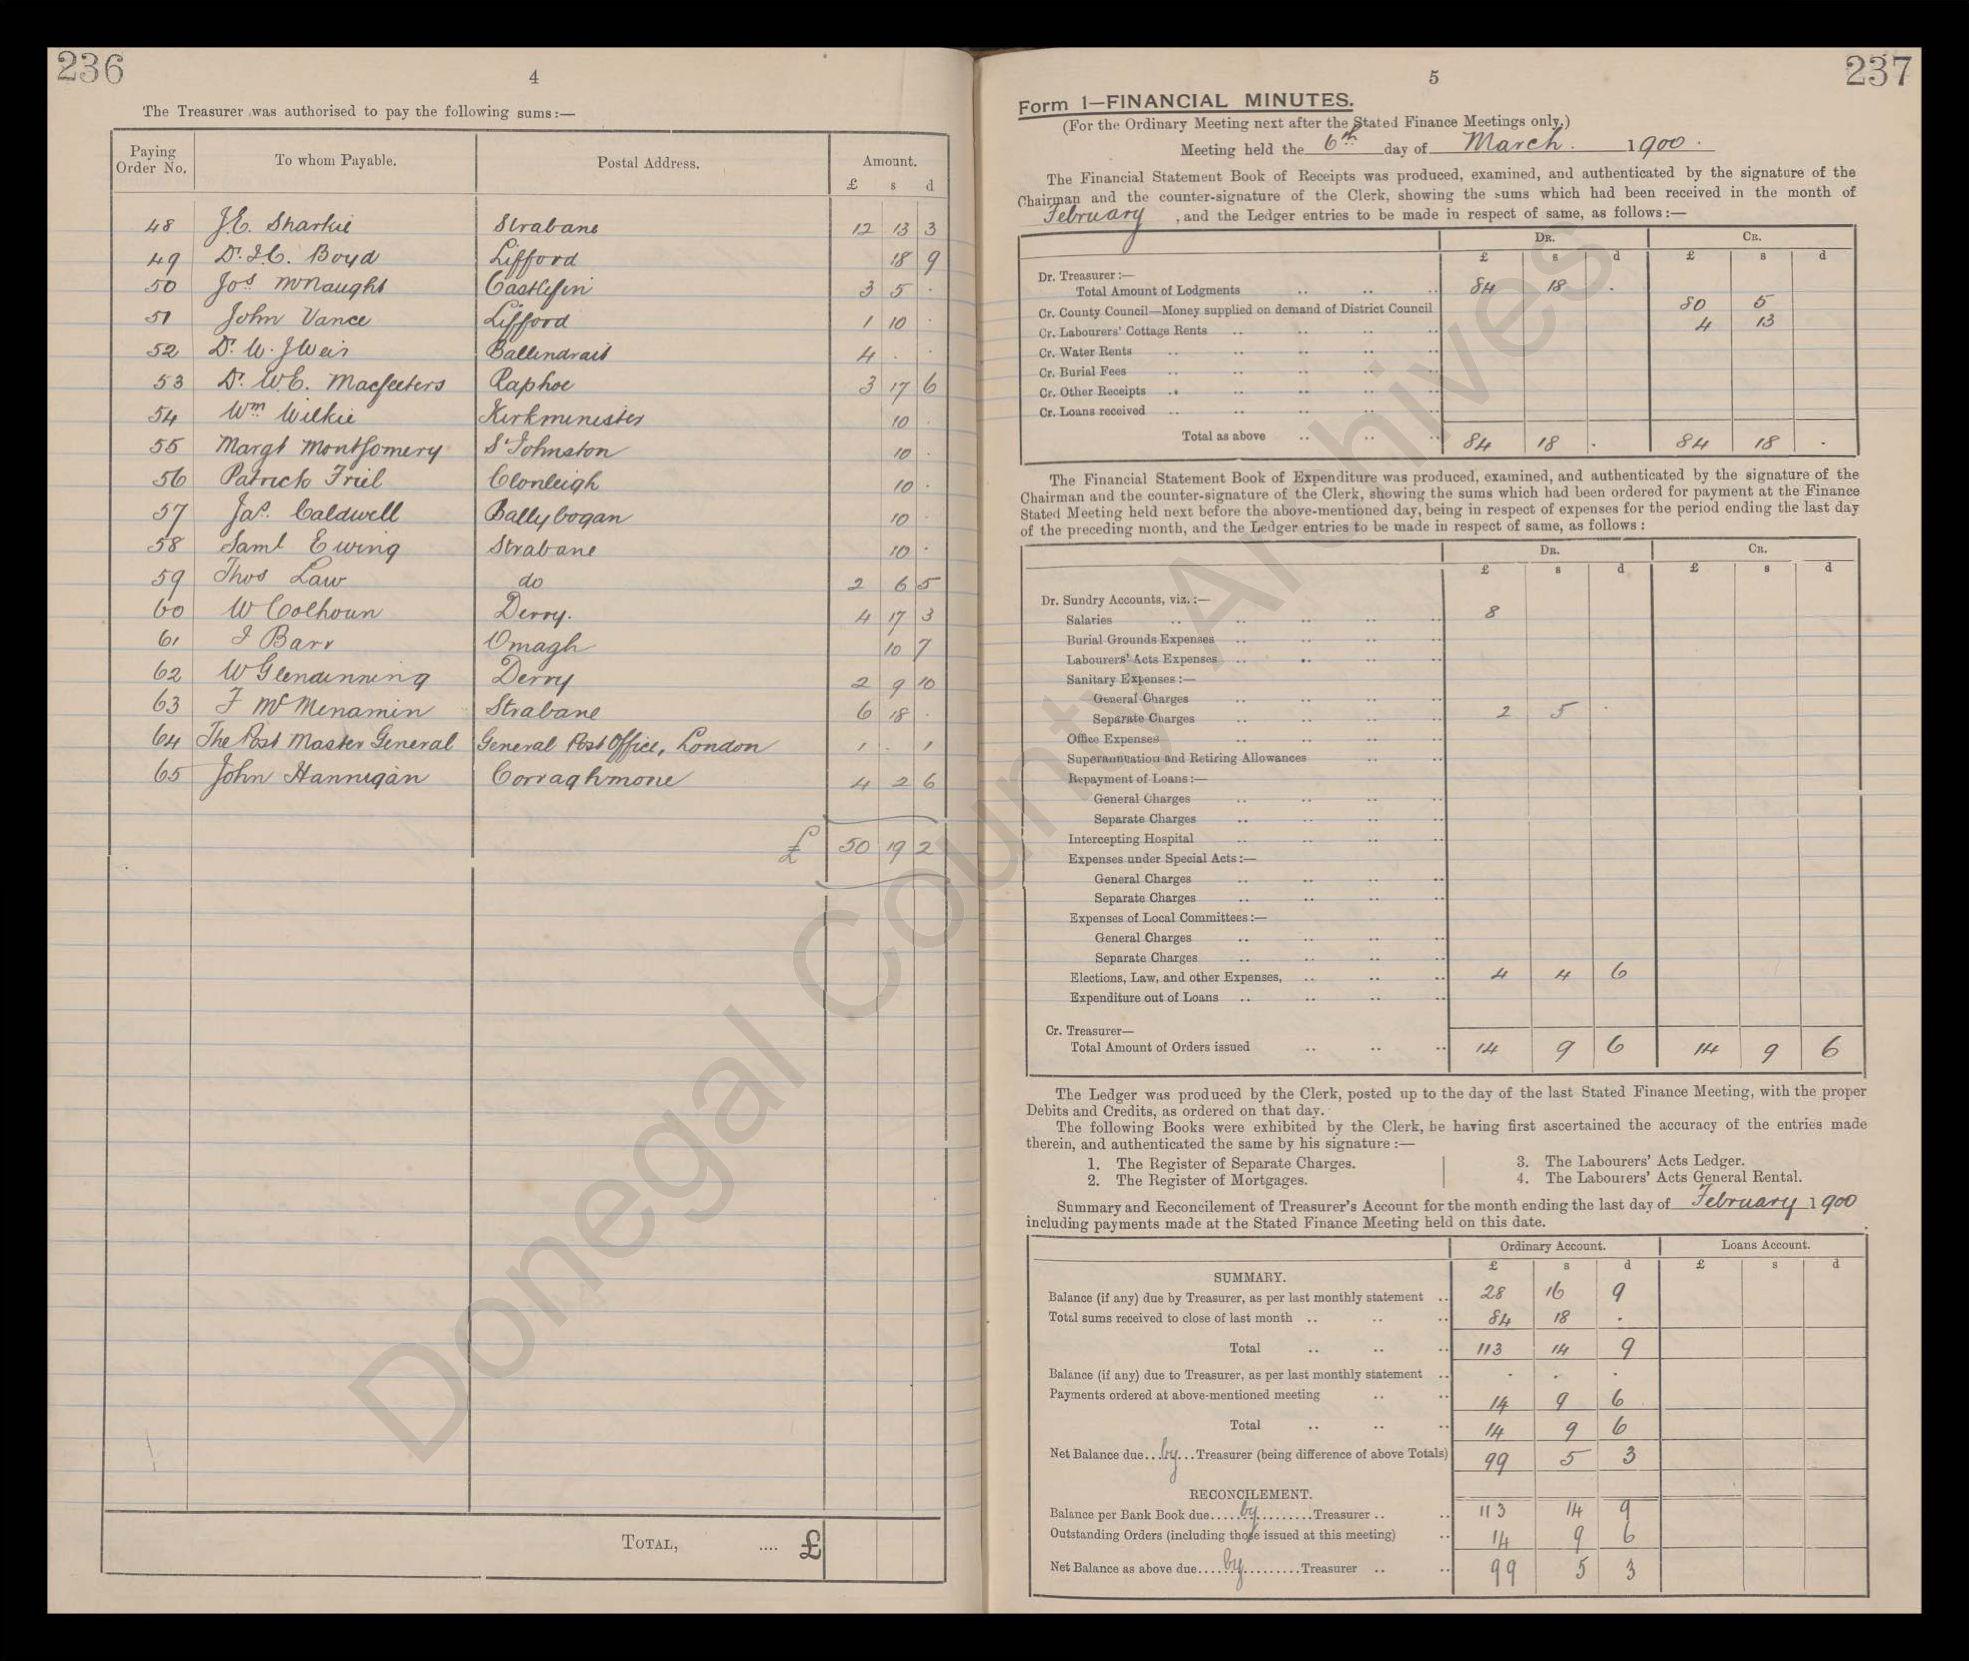 236
4
The Treasurer was authorised to pay the following sums:—
Paying Order No. To whom Payable. Postal Address. Amount.
£ s d
48 J.E. Sharkie Strabane 12 13 3
49 Dr. J.C. Boyd Lifford 18 9
50 Jos McNaught Castlefin 3 5 .
51 John Vance Lifford 1 10 .
52 Dr. W. J Weir Ballindrait 4 . .
53 Dr. W.E. Macfeeters Raphoe 3 17 6
54 Wm Wilkie Kirkminister 10 .
55 Margt Montgomery St Johnston 10 .
56 Patrick Friel Clonleigh 10 .
57 Jas. Caldwell Ballybogan 10 .
58 Saml Ewing Strabane 10 .
59 Thos Law do 2 6 5
60 W Colhoun Derry. 4 17 3
61 J Barr Omagh 10 7
62 W Glendinning Derry 2 9 10
63 F McMenamin Strabane 6 18 .
64 The Post Master General General Post Office, London 1 . 1
65 John Hannigan Corraghmone 4 2 6
£ 50 19 2
Total, .... £
237
5
Form 1—FINANCIAL MINUTES.
(For the Ordinary Meeting next after the Stated Finance Meetings only.)
Meeting held the 6th day of March. 1900.
The Financial Statement Book of Receipts was produced, examined, and authenticated by the signature of the
Chairman and the counter-signature of the Clerk, showing the sums which had been received in the month of
February, and the Ledger entries to be made in respect of same, as follows:—
Dr. Cr.
£ s d £ s d
Dr. Treasurer:—
Total Amount of Lodgments .. .. .. 84 18 .
Cr. County Council—Money supplied on demand of District Council 80 5
Cr. Labourers' Cottage Rents .. .. .. .. 4 13
Cr. Water Rents .. .. .. .. ..
Cr. Burial Fees .. .. .. .. ..
Cr. Other Receipts .. .. .. .. ..
Cr. Loans received .. .. .. .. ..
Total as above .. .. .. 84 18 . 84 18 .
The Financial Statement Book of Expenditure was produced, examined, and authenticated by the signature of the
Chairman and the counter-signature of the Clerk, showing the sums which had been ordered for payment at the Finance
Stated Meeting held next before the above-mentioned day, being in respect of expenses for the period ending the last day
of the preceding month, and the Ledger entries to be made in respect of same, as follows:
Dr. Cr.
£ s d £ s d
Dr. Sundry Accounts, viz.:—
Salaries .. .. .. .. .. 8
Burial Grounds Expenses .. .. .. ..
Labourers' Acts Expenses .. .. .. ..
Sanitary Expenses:—
General Charges .. .. .. ..
Separate Charges .. .. .. .. 2 5 .
Office Expenses .. .. .. ..
Superannuation and Retiring Allowances .. ..
Repayment of Loans:—
General Charges .. .. .. ..
Separate Charges .. .. .. ..
Intercepting Hospital .. .. .. ..
Expenses under Special Acts:—
General Charges .. .. .. ..
Separate Charges .. .. .. ..
Expenses of Local Committees:—
General Charges .. .. .. ..
Separate Charges .. .. .. ..
Elections, Law, and other Expenses, .. .. .. 4 4 6
Expenditure out of Loans .. .. .. ..
Cr. Treasurer—
Total Amount of Orders issued .. .. .. 14 9 6 14 9 6
The Ledger was produced by the Clerk, posted up to the day of the last Stated Finance Meeting, with the proper
Debits and Credits, as ordered on that day.
The following Books were exhibited by the Clerk, he having first ascertained the accuracy of the entries made
therein, and authenticated the same by his signature:—
1. The Register of Separate Charges.
2. The Register of Mortgages.
3. The Labourers' Acts Ledger.
4. The Labourers' Acts General Rental.
Summary and Reconcilement of Treasurer's Account for the month ending the last day of February 1900
including payments made at the Stated Finance Meeting held on this date.
Ordinary Account. Loans Account.
£ s d £ s d
SUMMARY.
Balance (if any) due by Treasurer, as per last monthly statement .. 28 16 9
Total sums received to close of last month .. .. .. 84 18 .
Total .. .. .. 113 14 9
Balance (if any) due to Treasurer, as per last monthly statement .. . . .
Payments ordered at above-mentioned meeting .. .. 14 9 6
Total .. .. .. 14 9 6
Net Balance due...by...Treasurer (being difference of above Totals) 99 5 3
RECONCILEMENT.
Balance per Bank Book due.....by.........Treasurer .. .. 113 14 9
Outstanding Orders (including those issued at this meeting) .. 14 9 6
Net Balance as above due....by.........Treasurer .. .. 99 5 3
Donegal County Archives